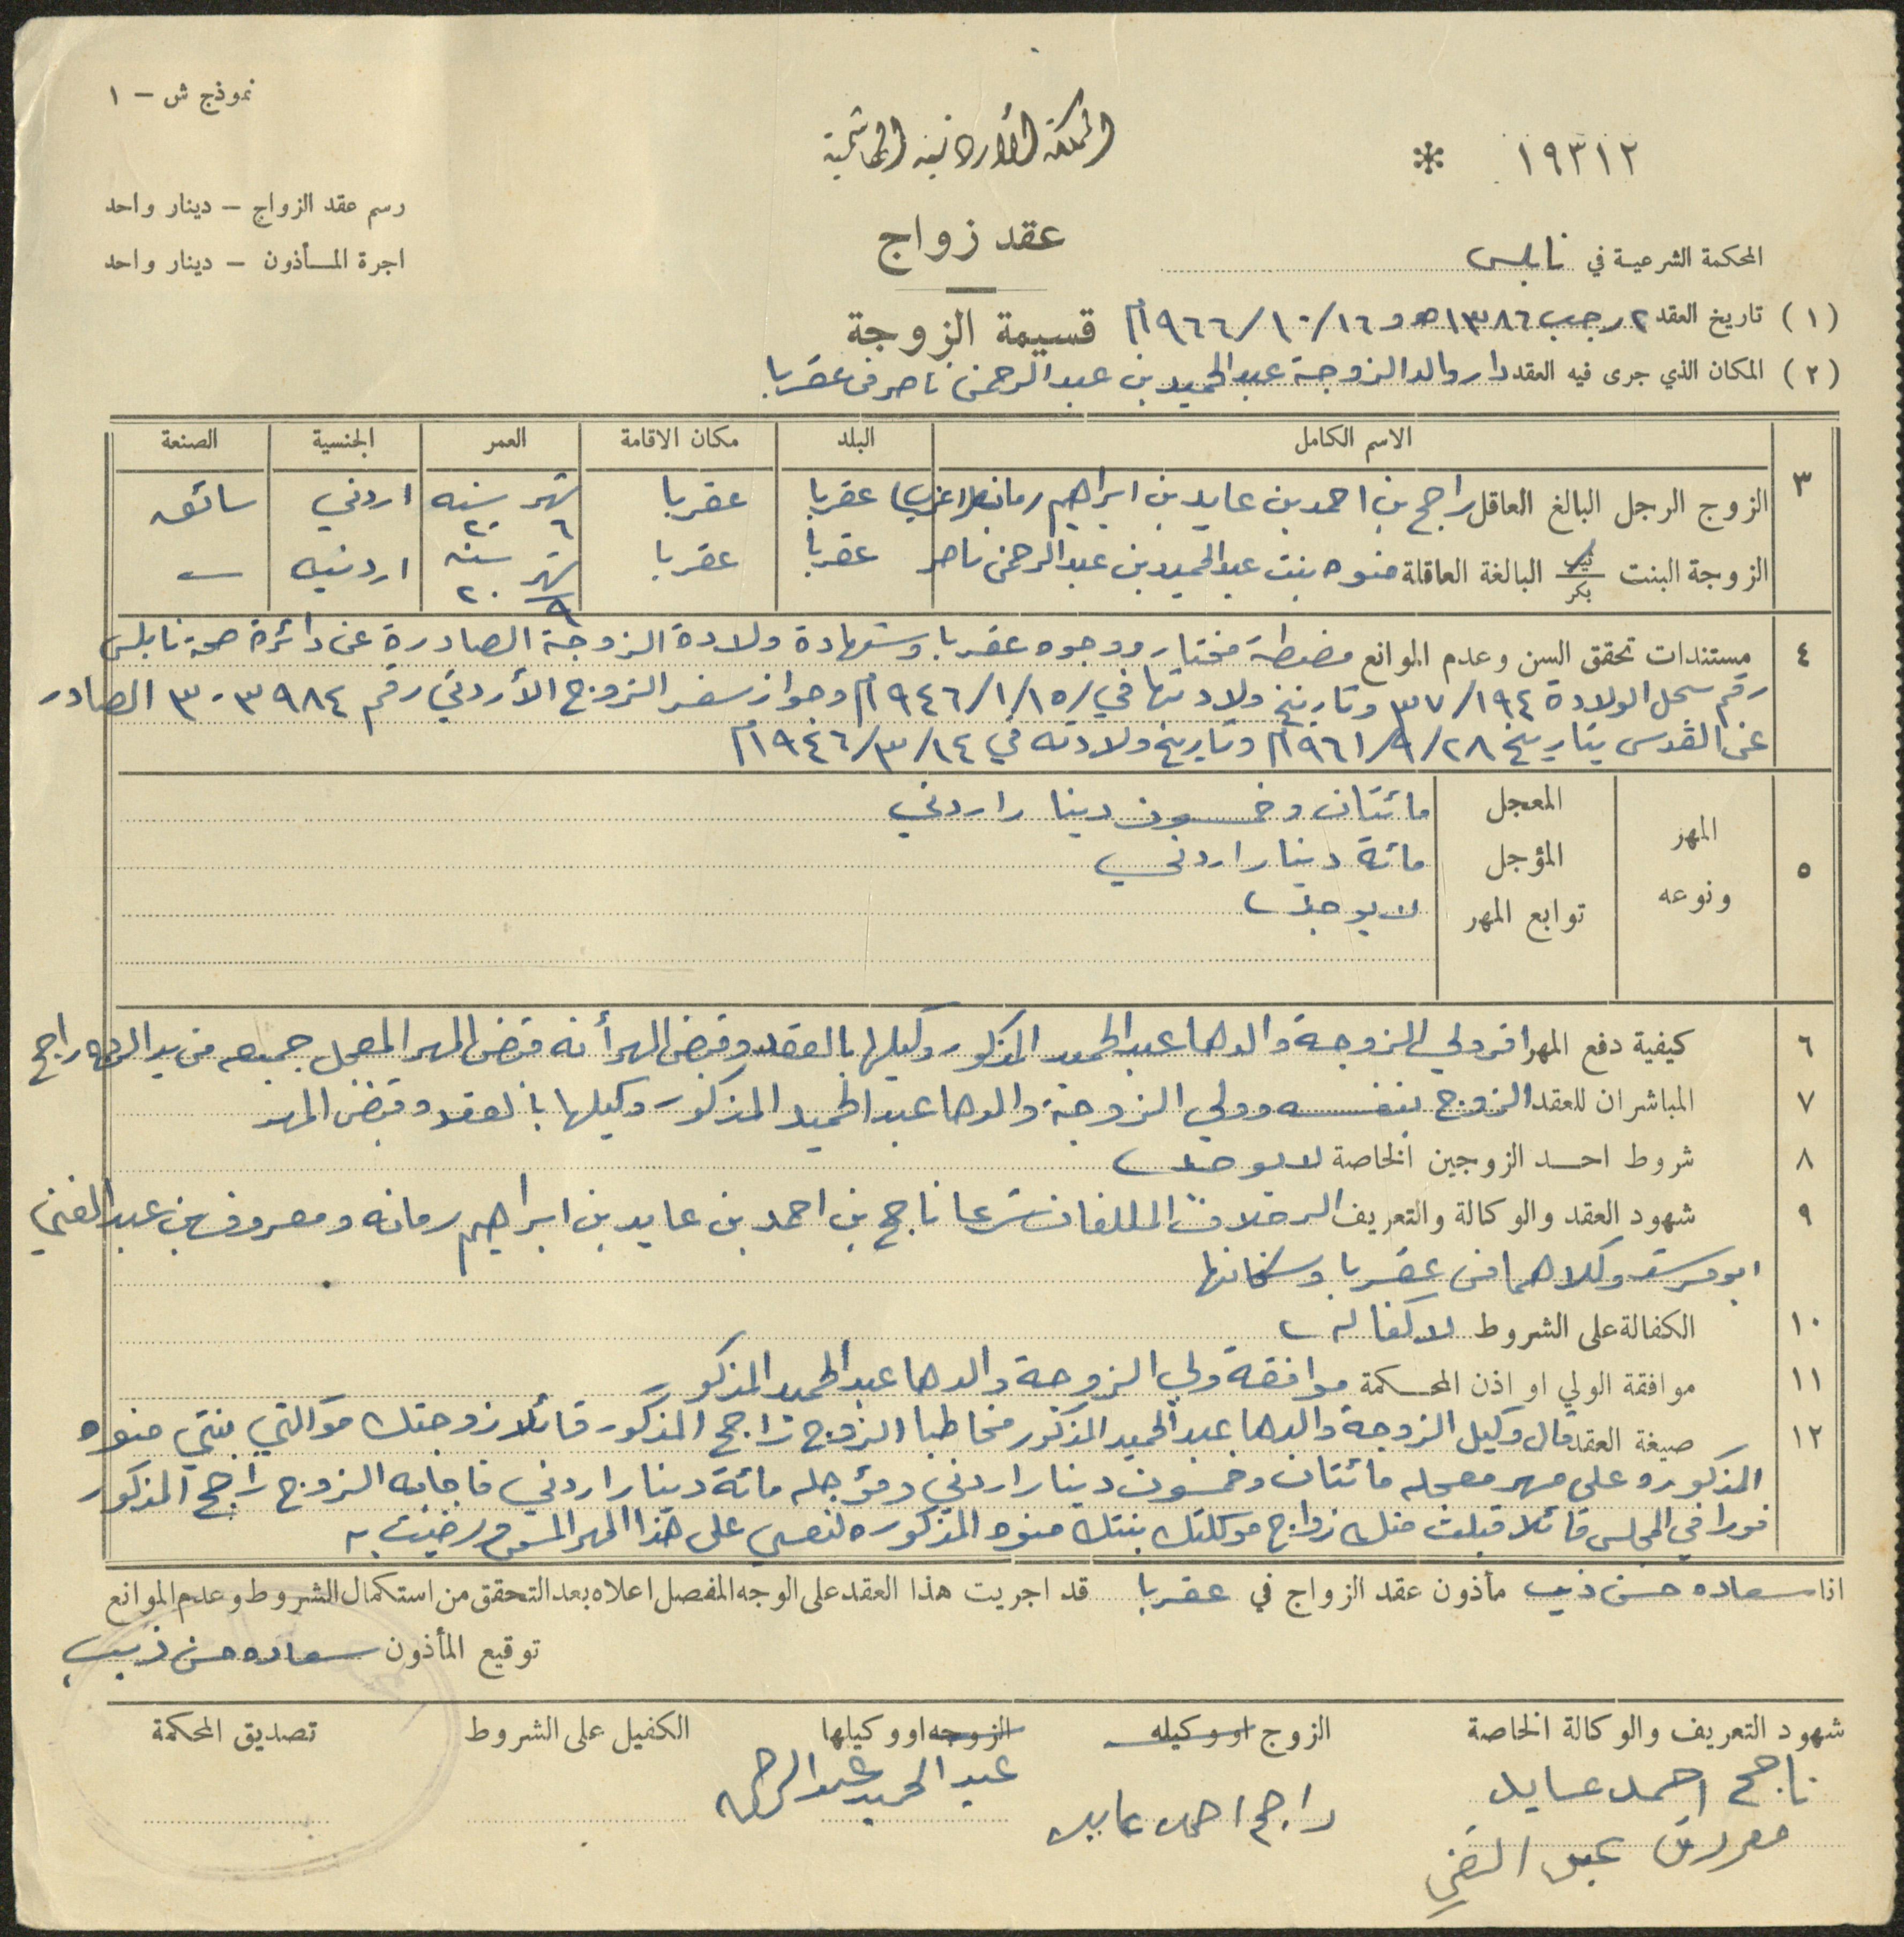 نموذج ش – ١
المملكة الأردنية الهاشمية
١٩٣١٢ *
رسم عقد الزواج – دينار واحد
اجرة المأذون – دينار واحد
عقد زواج
المحكمة الشرعية في نابلس
قسيمة الزوجة
(١) تاريخ العقد ٢ رجب ١٣٨٦ه و ١٦/١٠/١٩٦٦م
(٢) المكان الذي جرى فيه العقد دار والد الزوجة عبد الحميد بن عبد الرحمن ناصر في عقربا.
الاسم الكامل البلد مكان الاقامة العمر الجنسية الصنعة
٣ الزوج الرجل البالغ العاقل راجح بن احمد بن عايد بن ابراهيم رمانه (اعزب) عقربا عقربا شهر ٦ سنه ٢٠ اردني سائق
الزوجة البنت ثيب بكر البالغة العاقلة منوه بنت عبد الحميد بن عبد الرحمن ناصر عقربا عقربا شهر ٩ سنه ٢٠ اردنيه –
٤ مستندات تحقق السن وعدم الموانع مضبطة مختار ووجوه عقربا. وشهادة ولادة الزوجة الصادرة عن دائرة صحة نابلس
رقم سجل الولادة ٣٧/١٩٤ وتاريخ ولادتها في ١٥/١/١٩٤٦م وجواز سفر الزوج الأردني رقم ٣٠٣٩٨٤ الصادر
عن القدس بتاريخ ٢٨/٩/١٩٦١م وتاريخ ولادته في ١٤/٣/١٩٤٦م
٥ المهر ونوعه
المعجل مائتان وخمسون دينار اردني
المؤجل مائة دينار اردني
توابع المهر لا يوجد
٦ كيفية دفع المهر اقر ولي الزوجة والدها عبد الحميد المذكور وكيلها بالعقد وقبض المهر أنه قبض المهر المعجل جميعه من يد الزوج راجح
٧ المباشران للعقد الزوج بنفسه وولي الزوجة والدها عبد الحميد المذكور وكيلها بالعقد وقبض المهر
٨ شروط احد الزوجين الخاصة لا يوجد
٩ شهود العقد والوكالة والتعريف الرجلان المكلفان شرعا ناجح بن احمد بن عايد بن ابراهيم رمانه ومعروف بن عبد الغني
ابو وكلاهما من عقربا وسكانها
١٠ الكفالة على الشروط لا كفاله
١١ موافقة الولي او اذن المحكمة موافقة ولي الزوجة والدها عبد الحميد المذكور
١٢ صيغة العقد قال وكيل الزوجة والدها عبد الحميد المذكور مخاطبا الزوج راجح المذكور قائلا زوجتك موكلتي بنتي منوه
المذكوره على مهر معجله مائتان وخمسون دينار اردني ومؤجله مائة دينار اردني فاجابه الزوج راجح المذكور
فورا في المجلس قائلا قبلت منك زواج موكلتك بنتك منوه المذكوره لنفسي على هذا المهر المسمى ورضيت به
انا سعاده حسن ذيب مأذون عقد الزواج في عقربا قد اجريت هذا العقد على الوجه المفصل اعلاه بعد التحقق من استكمال الشروط وعدم الموانع
توقيع المأذون سعاده حسن ذيب
شهود التعريف والوكالة الخاصة الزوج او وكيله الزوجه او وكيلها الكفيل على الشروط تصديق المحكمة
ناجح احمد عايد راجح احمد عايد عبد الحميد عبد الرحمن
معروف عبد الغني